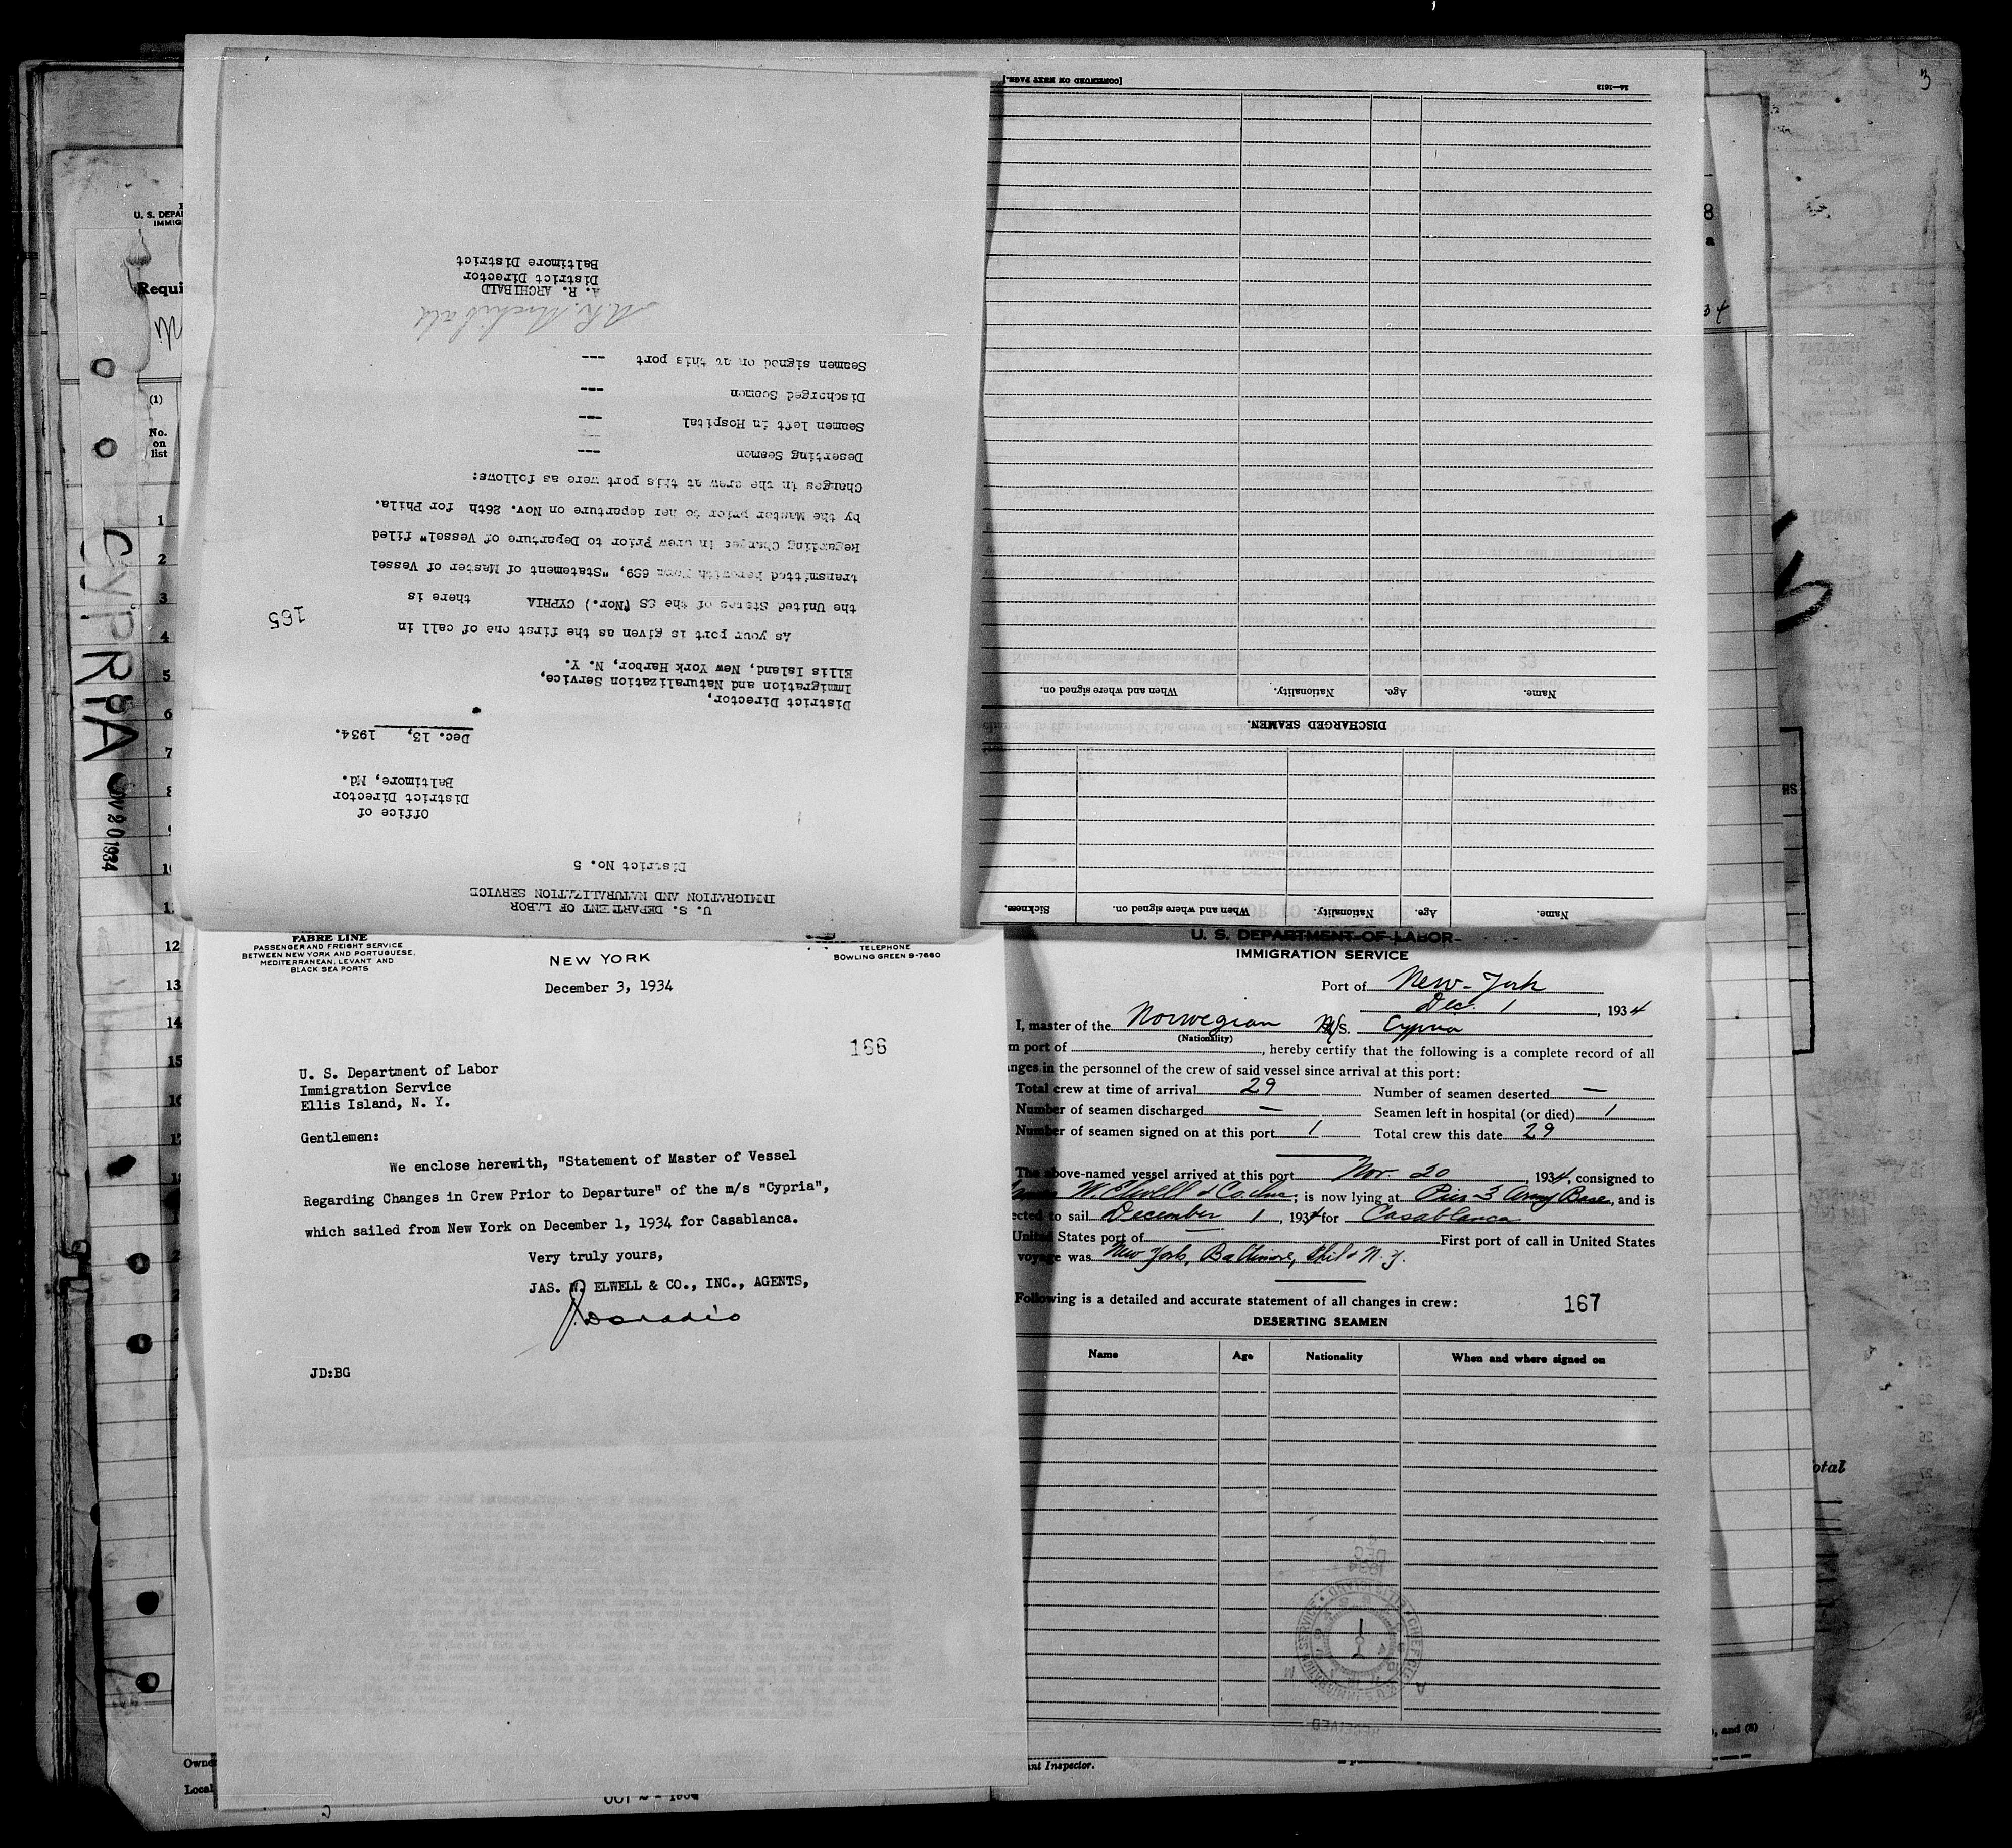 3
U. S. DEPAR
IMMIG
Requi
(1)
No.
on
list
CYPRIA
NOV 20 1934
U. S. DEPARTMENT OF LABOR
IMMIGRATION AND NATURALIZATION SERVICE
District No. 5
Office of
District Director
Baltimore, Md.
Dec. 13, 1934.
District Director,
Immigration and Naturalization Service,
Ellis Island, New York Harbor, N. Y.
165
As your port is given as the first one of call in
the United States of the SS (Nor.) CYPRIA there is
transmitted herewith Form 689, "Statement of Master of Vessel
Regarding Changes in Crew Prior to Departure of Vessel" filed
by the Master prior to her departure on Nov. 26th for Phila.
Changes in the crew at this port were as follows:
Deserting Seamen ---
Seamen left in Hospital ---
Discharged Seamen ---
Seamen signed on at this port ---
A. R. Archibald
A. R. ARCHIBALD
District Director
Baltimore District
Name. Age. Nationality. When and where signed on. Sickness.
DISCHARGED SEAMEN.
Name. Age. Nationality. When and where signed on.
14—1613
[CONTINUED ON NEXT PAGE.]
FABRE LINE
PASSENGER AND FREIGHT SERVICE
BETWEEN NEW YORK AND PORTUGUESE,
MEDITERRANEAN, LEVANT AND
BLACK SEA PORTS
NEW YORK
TELEPHONE
BOWLING GREEN 9-7660
December 3, 1934
166
U. S. Department of Labor
Immigration Service
Ellis Island, N. Y.
Gentlemen:
We enclose herewith, "Statement of Master of Vessel
Regarding Changes in Crew Prior to Departure" of the m/s "Cypria",
which sailed from New York on December 1, 1934 for Casablanca.
Very truly yours,
JAS. W. ELWELL & CO., INC., AGENTS,
JD:BG
U. S. DEPARTMENT OF LABOR
IMMIGRATION SERVICE
Port of New-York
Dec. 1, 1934
I, master of the Norwegian M/S. Cypria
(Nationality)
m port of , hereby certify that the following is a complete record of all
nges in the personnel of the crew of said vessel since arrival at this port:
Total crew at time of arrival 29 Number of seamen deserted —
Number of seamen discharged — Seamen left in hospital (or died) 1
Number of seamen signed on at this port 1 Total crew this date 29
The above-named vessel arrived at this port Nov. 20, 1934, consigned to
James W. Elwell & Co Inc, is now lying at Pier 3 Army Base, and is
ected to sail December 1, 1934 for Casablanca
United States port of — First port of call in United States
voyage was New York, Baltimore, Phil & N.Y.
Following is a detailed and accurate statement of all changes in crew:
167
DESERTING SEAMEN
Name Age Nationality When and where signed on
RECEIVED
DEC
1934
otal
, and (8)
Owne
Local
nt Inspector.